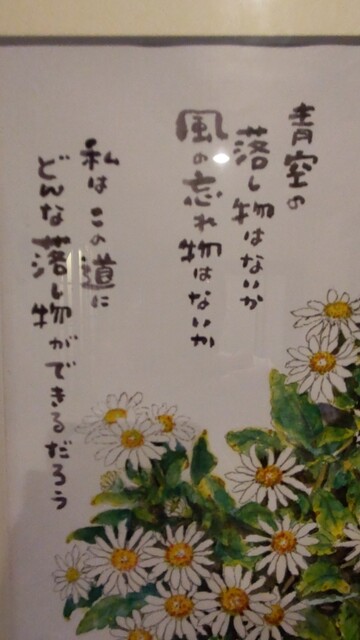 青空の
落し物はないか
風の忘れ物はないか
私はこの道に
どんな落し物ができるだろう